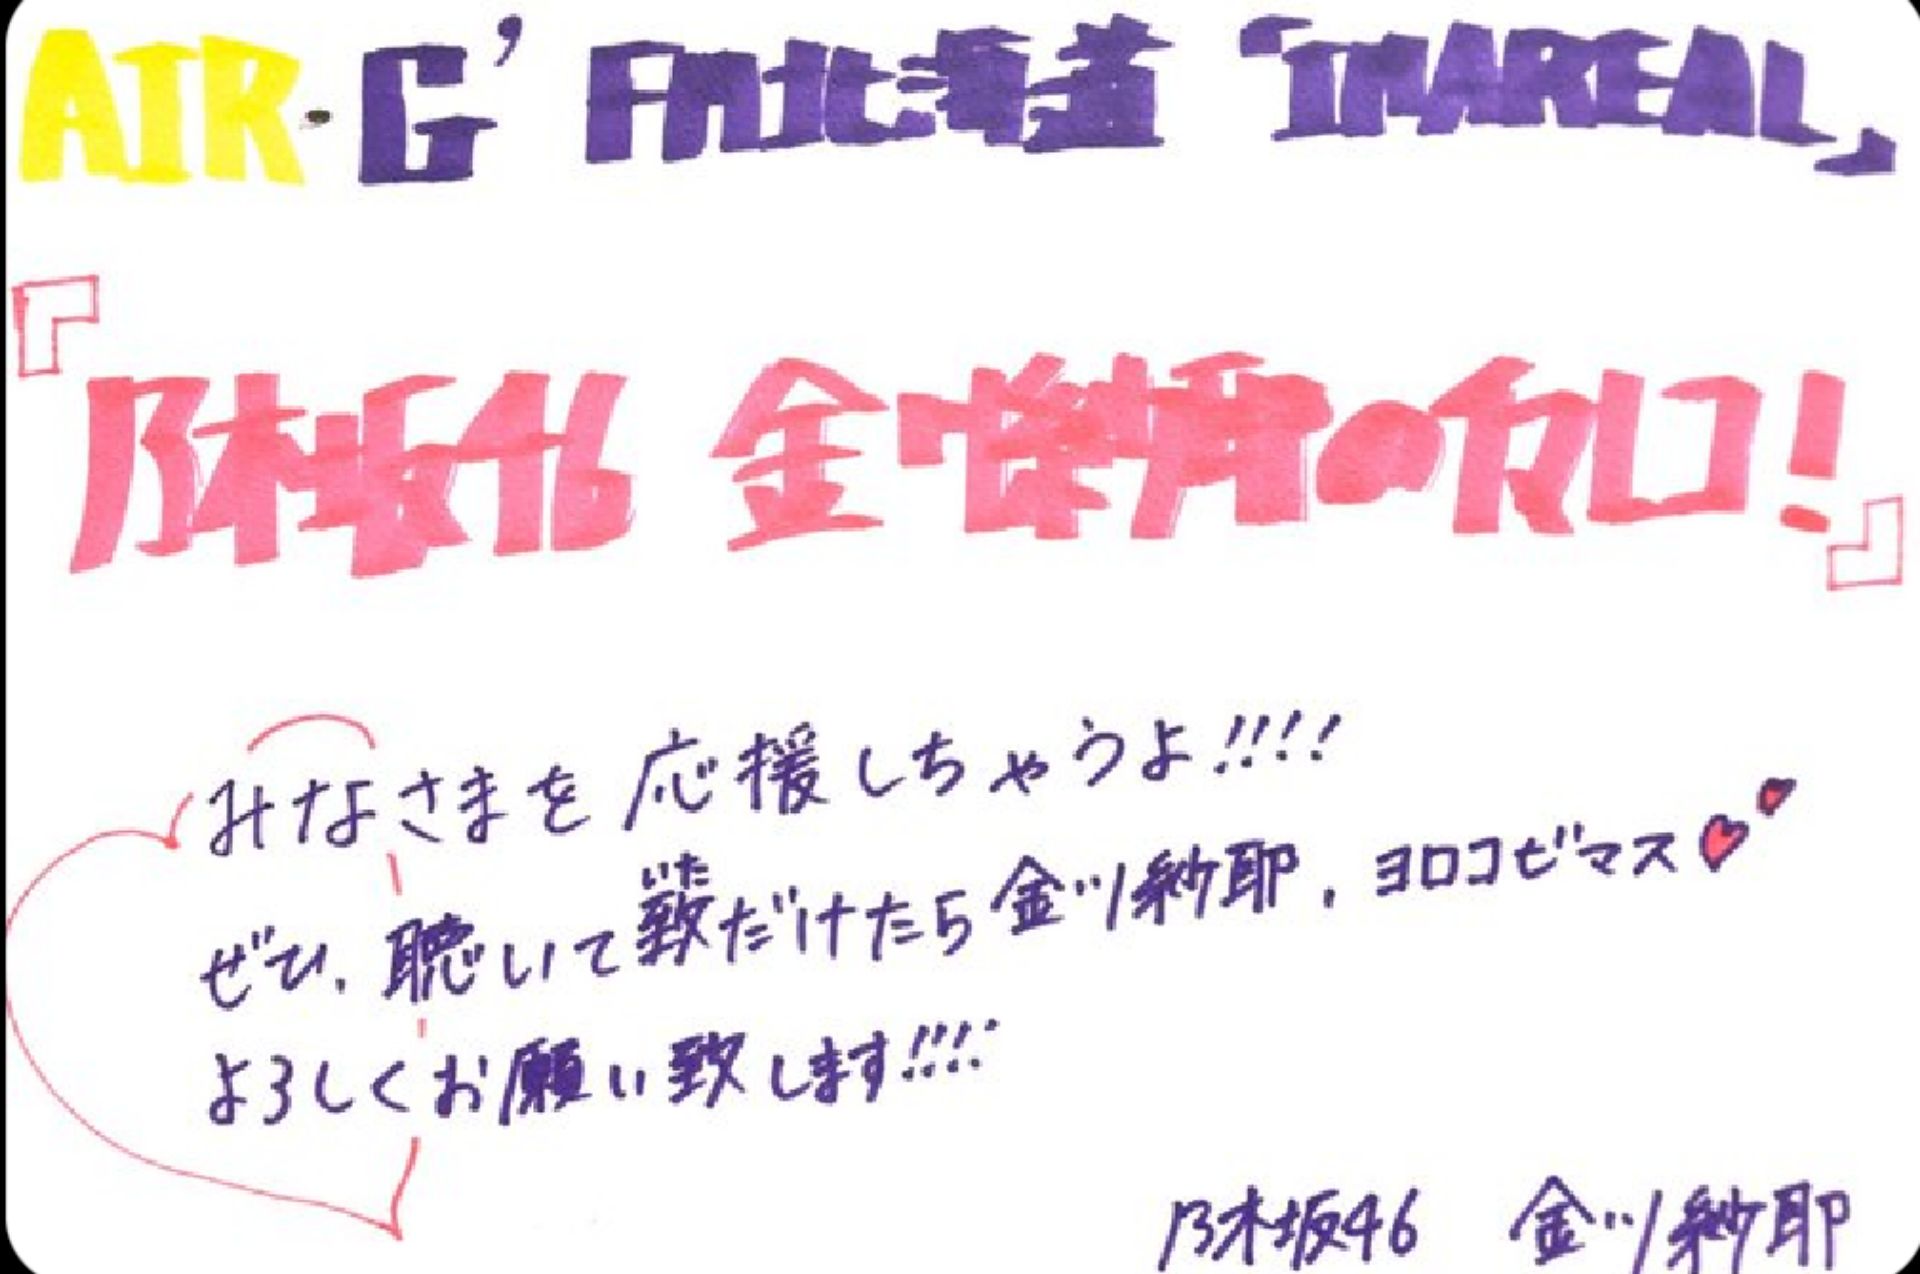 AIR-G' FM北海道 「IMAREAL」
『乃木坂46 金川紗耶の推し!』
みなさまを応援しちゃうよ!!!!
ぜひ、聴いて致だけたら金川紗耶、ヨロコビマス
いた
よろしくお願い致します!!!!
乃木坂46 金川紗耶